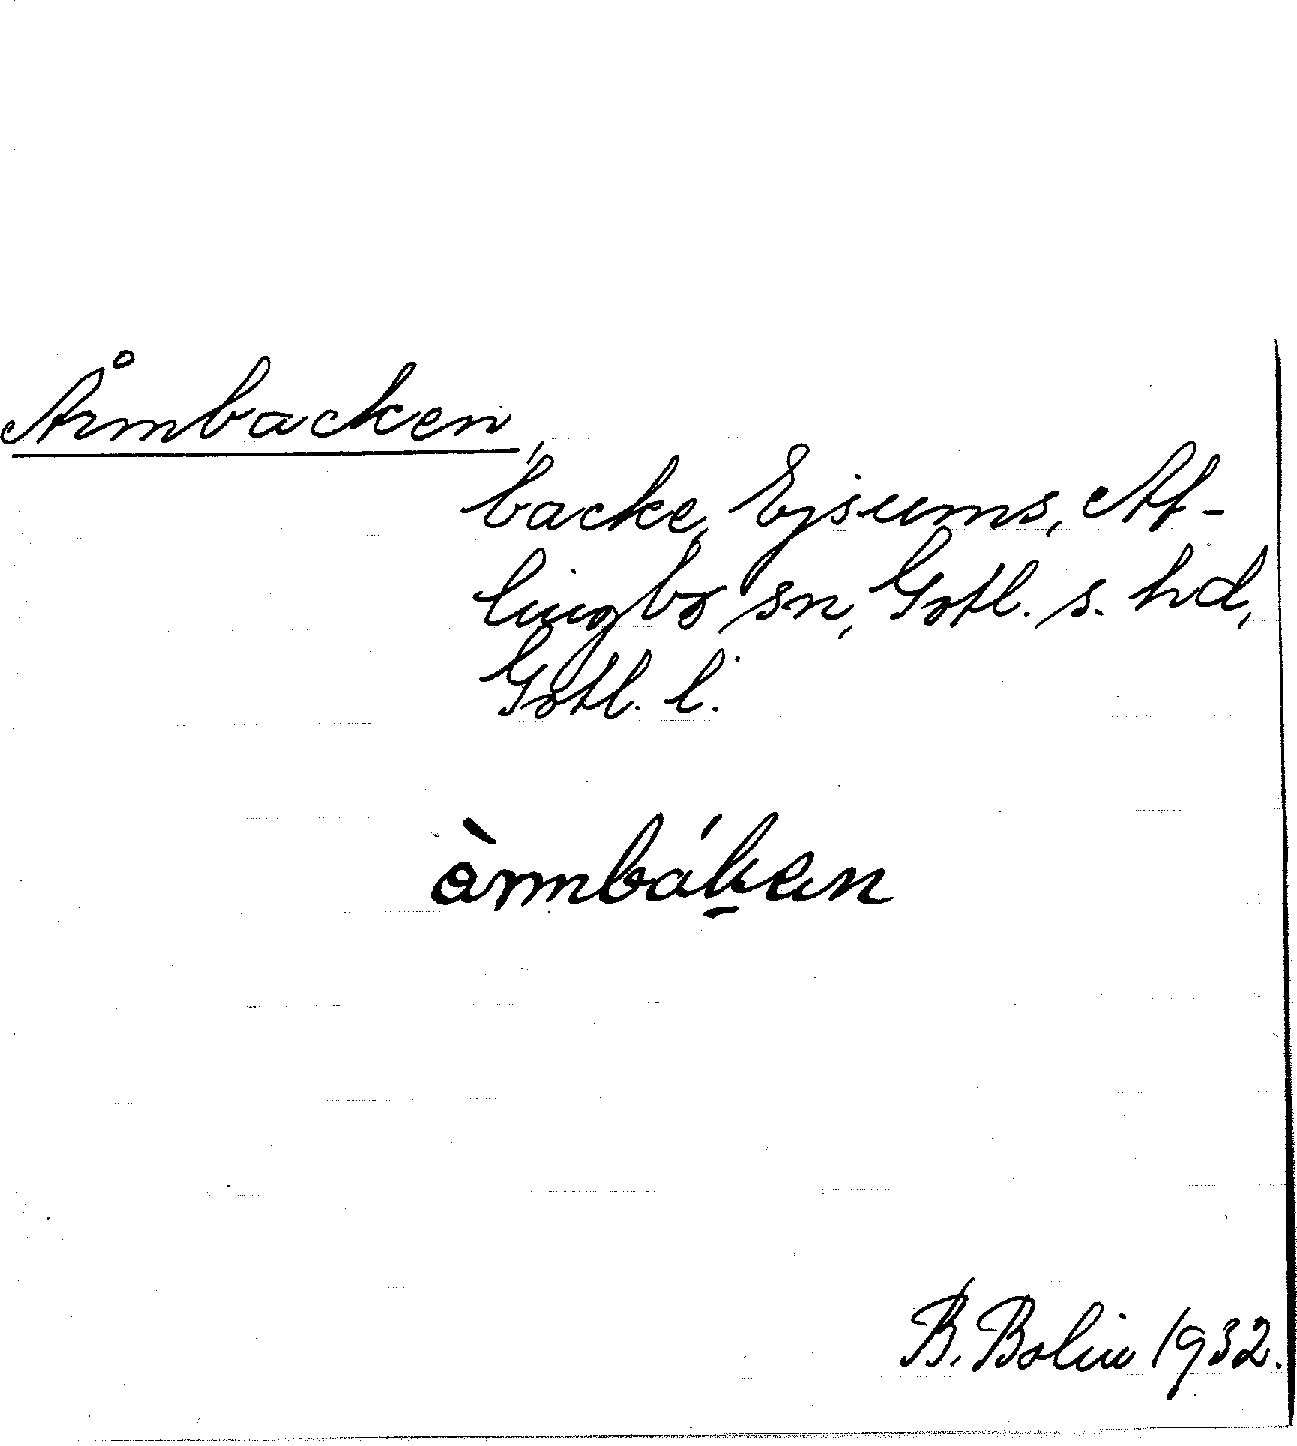 Årmbacken,
backe, Ejsums, At-
lingbo sn, Gotl. s. hd,
Gotl. l.
àrmbák̠en
B. Bolin 1932.